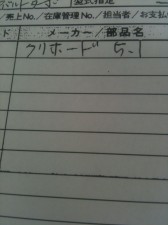 型式指定
／売上No.／在庫管理No.／担当者／お支払
ド メーカー／部品名
クリホード 5.1